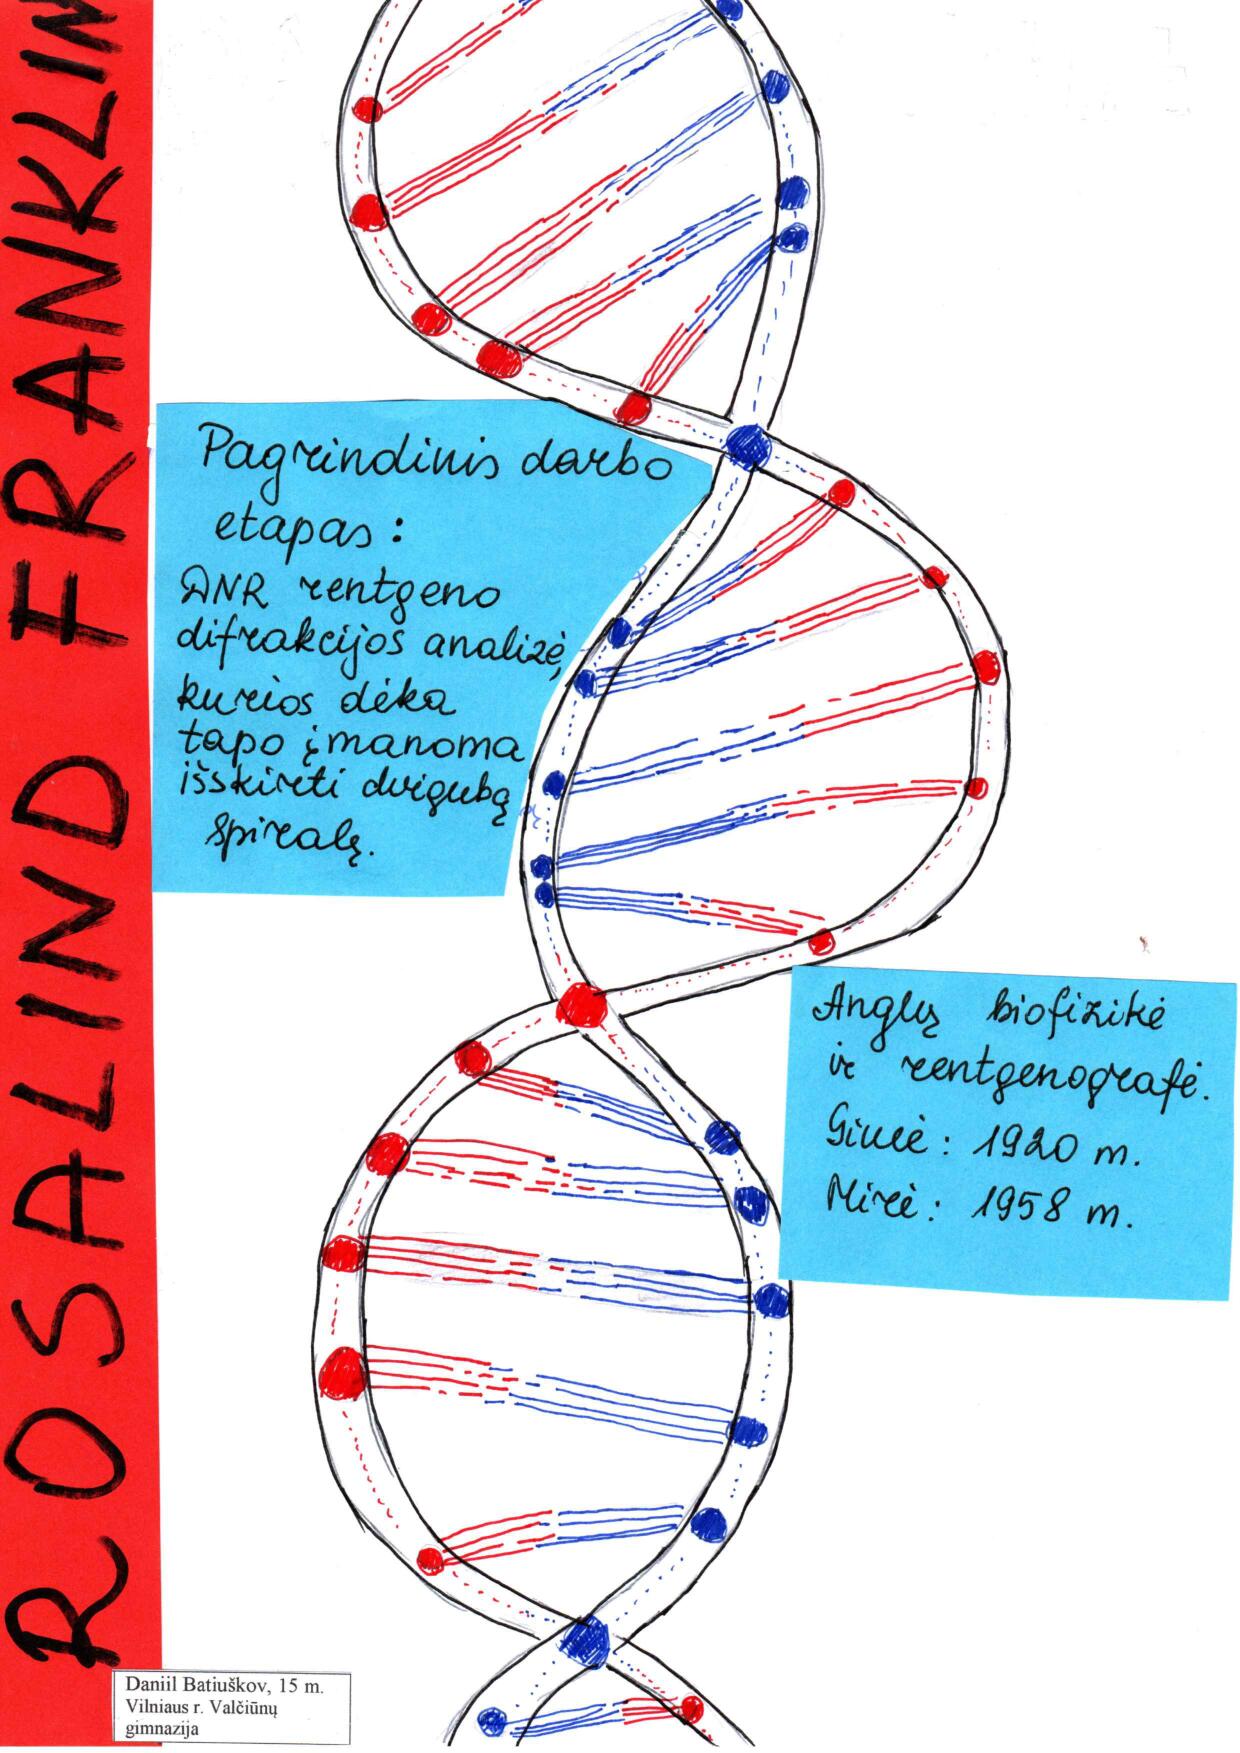 ROSALIND FRANKLIN
Pagrindinis darbo
etapas:
DNR rentgeno
difrakcijos analizė,
kurios dėka
tapo įmanoma
išskirti dvigubą
spiralę.
Anglų biofizikė
ir rentgenografė.
Gimė: 1920 m.
Mirė: 1958 m.
Daniil Batiuškov, 15 m.
Vilniaus r. Valčiūnų
gimnazija